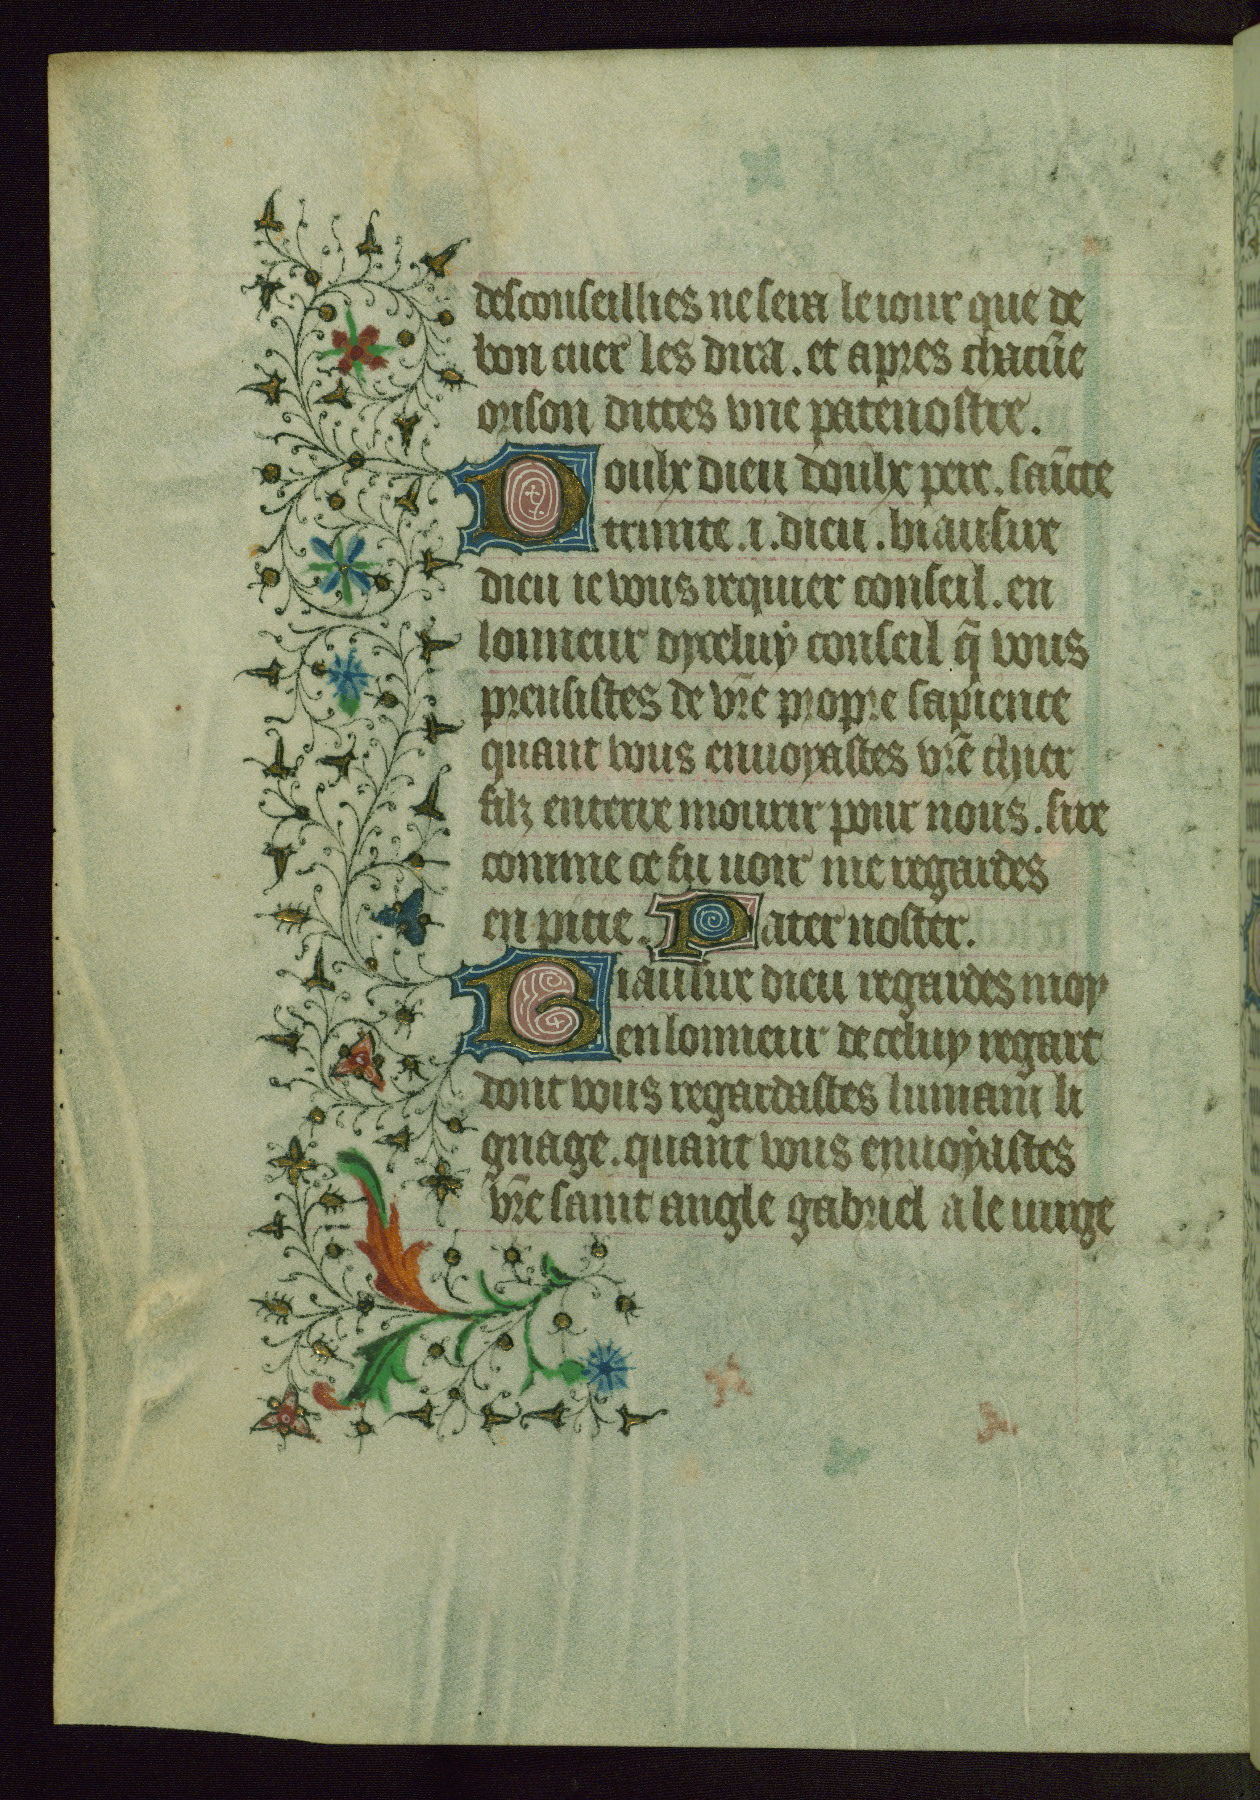 desconseillies ne sera le iour que de
bon cuer les dira. et apres chacūe
orison dittes vne patenostre.
Doulx dieu doulx pere. saīcte
trinite .i. dieu. biausire
dieu ie vous requier conseil. en
lonneur dyceluy conseil q̄ vous
prensistes de vr̄e propre sapience
quant vous enuoyastes vr̄e chier
filz enterre mourir pour nous. sire
comme ce fu uoir me regardes
en pitie. Pater noster.
Biausire dieu regardes moy
en lonneur de celuy regart
dont vous regardastes lumain li
gnage. quant vous enuoyastes
vr̄e saint angle gabriel a le uirge